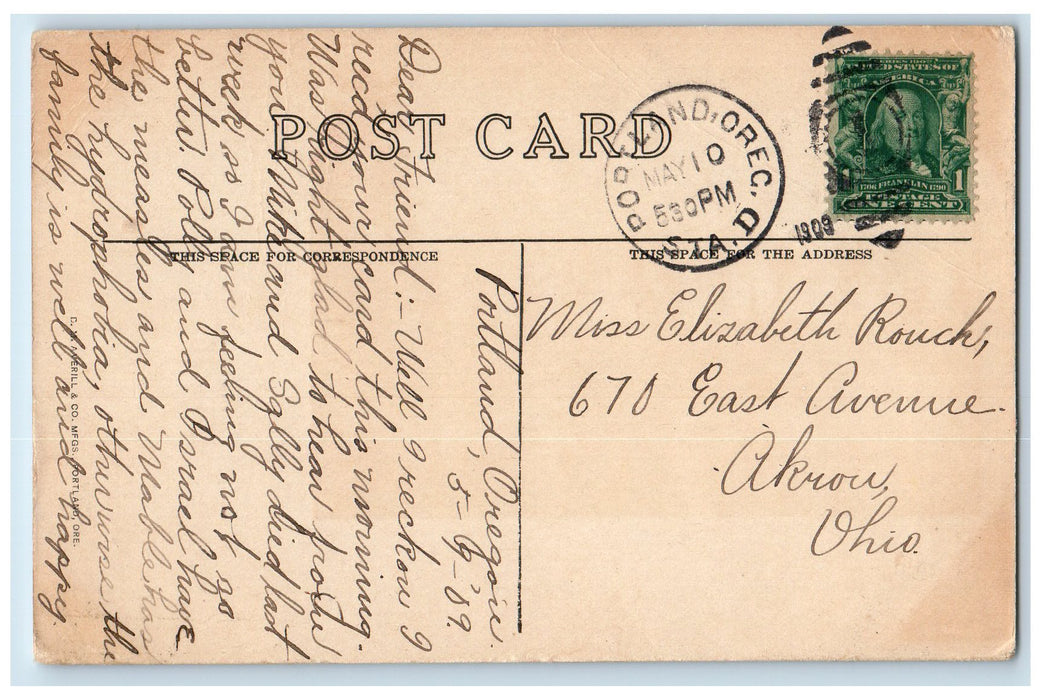 POST CARD
PORTLAND, OREG.
MAY 10
530 PM
STA. D
1909
SERIES 1902
UNITED STATES OF
AMERICA
1706 FRANKLIN 1790
1 POSTAGE 1
ONE CENT
THIS SPACE FOR CORRESPONDENCE
THIS SPACE FOR THE ADDRESS
Portland, Oregon.
5-9-09.
Dear Friend:- Well I reckon I
recd your card this morning.
Was right glad to hear from
you. Mike and Sally died last
week so I am feeling not so
better. Polly and Israel have
the measles and Mable has
the hydrophobia, otherwise the
family is well and happy.
Miss Elizabeth Rouch,
670 East Avenue.
Akron,
Ohio.
& CO. MFGS. PORTLAND, ORE.